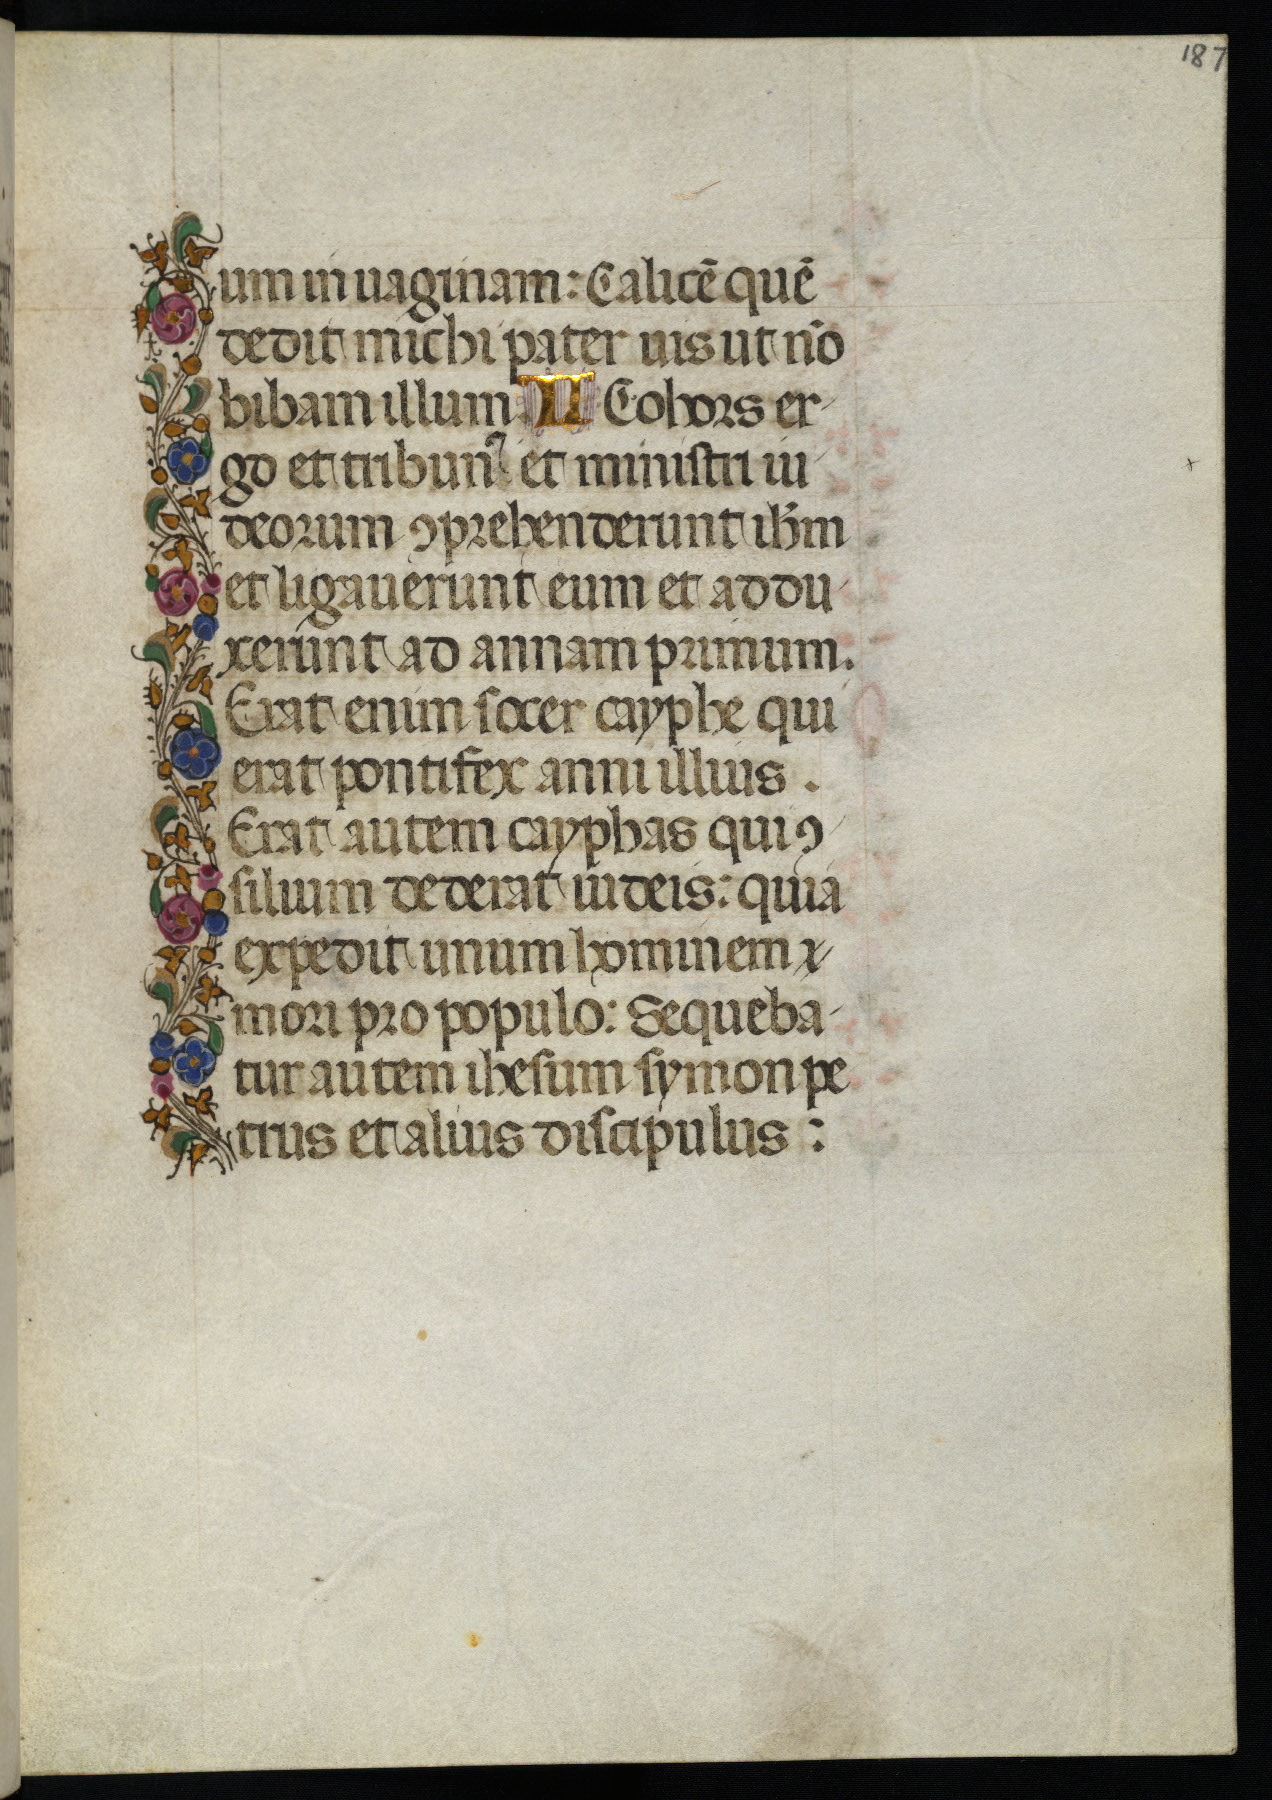 187
um in uaginam: Calicē quē
dedit michi pater uis ut nō
bibam illum. Cohors er-
go et tribunꝰ et ministri iu
deorum ꝯprehenderunt ihm̄
et ligauerunt eum et addu-
xerunt ad annam primum.
Erat enim socer cayphe qui
erat pontifex anni illius.
Erat autem cayphas qui ꝯ-
silium dederat iudeis: quia
expedit unum hominem
mori pro populo: Sequeba-
tur autem ihesum symon pe
trus et alius discipulus: